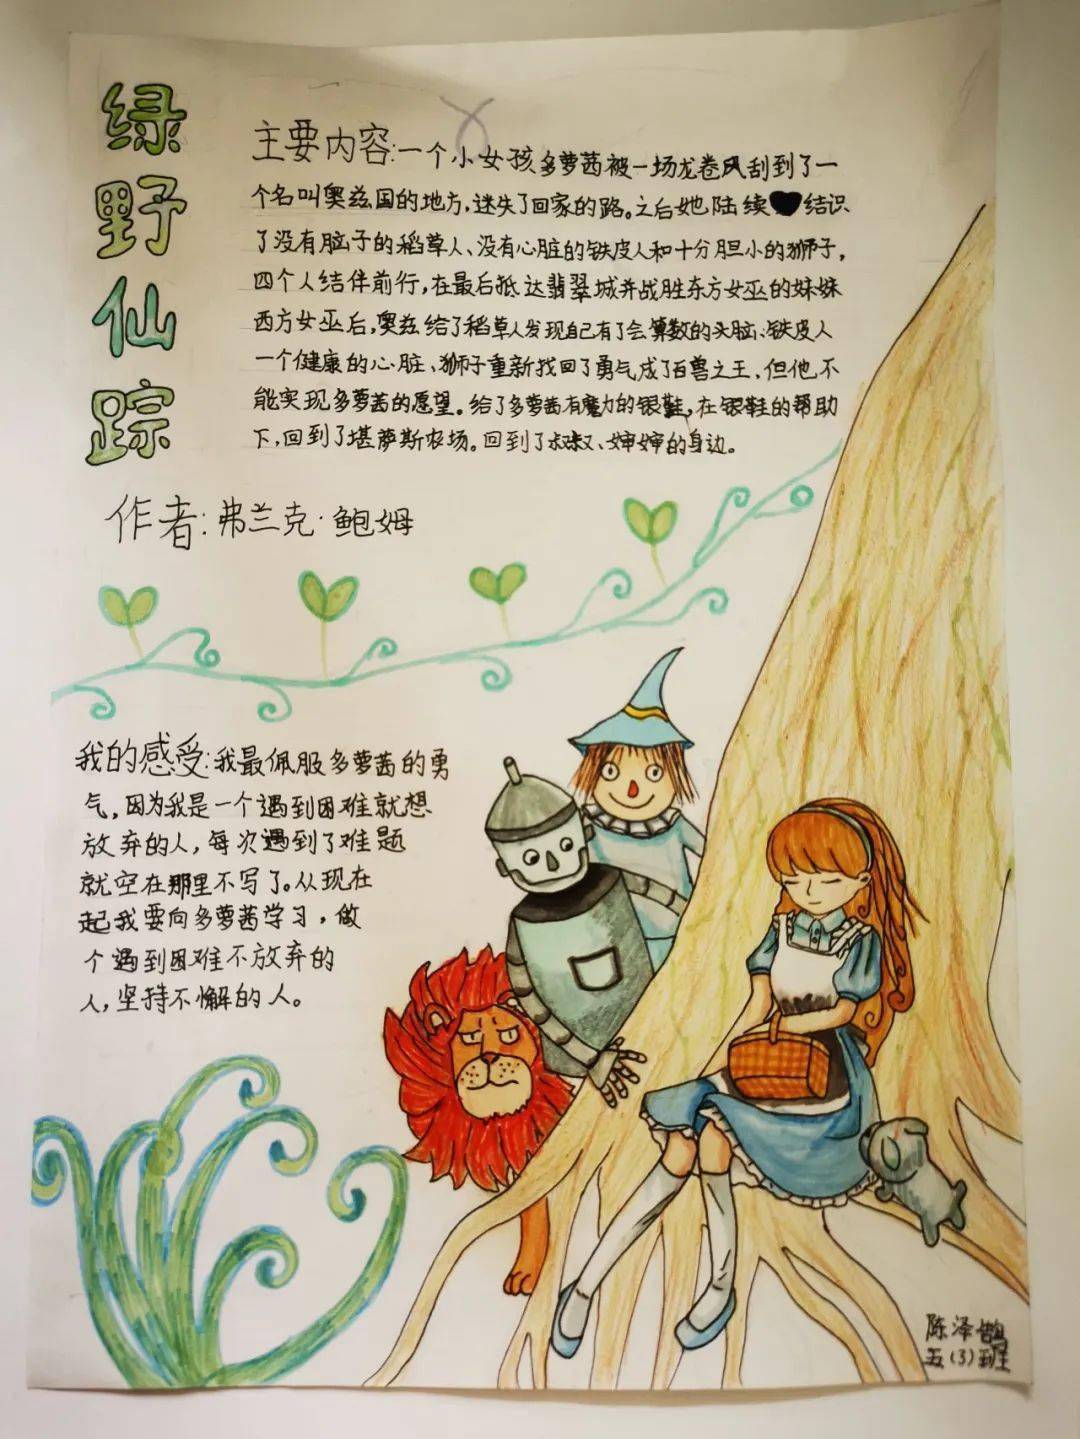 绿野仙踪
主要内容:一个小女孩多萝茜被一场龙卷风刮到了一
个名叫奥兹国的地方,迷失了回家的路。之后她陆续结识
了没有脑子的稻草人、没有心脏的铁皮人和十分胆小的狮子,
四个人结伴前行,在最后抵达翡翠城并战胜东方女巫的妹妹
西方女巫后,奥兹给了稻草人发现自己有了会算数的头脑、铁皮人
一个健康的心脏、狮子重新找回了勇气成了百兽之王、但他不
能实现多萝茜的愿望。给了多萝茜有魔力的银鞋,在银鞋的帮助
下,回到了堪萨斯农场。回到了叔叔、婶婶的身边。
作者:弗兰克·鲍姆
我的感受:我最佩服多萝茜的勇
气,因为我是一个遇到困难就想
放弃的人,每次遇到了难题
就空在那里不写了。从现在
起我要向多萝茜学习,做
个遇到困难不放弃的
人,坚持不懈的人。
陈泽
五(3)班